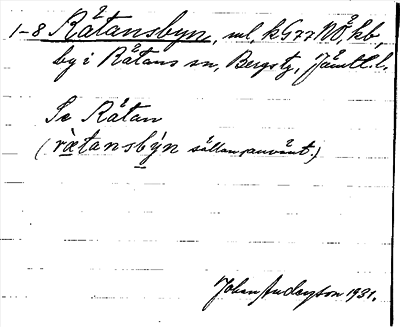 1-8 Råtansbyn, ml, kG77NÖ, kb,
by i Råtans sn, Bergs tg, Jämtl. l.
Se Råtan
(rætansbýn sällan använt.)
Johan Anderson 1931.